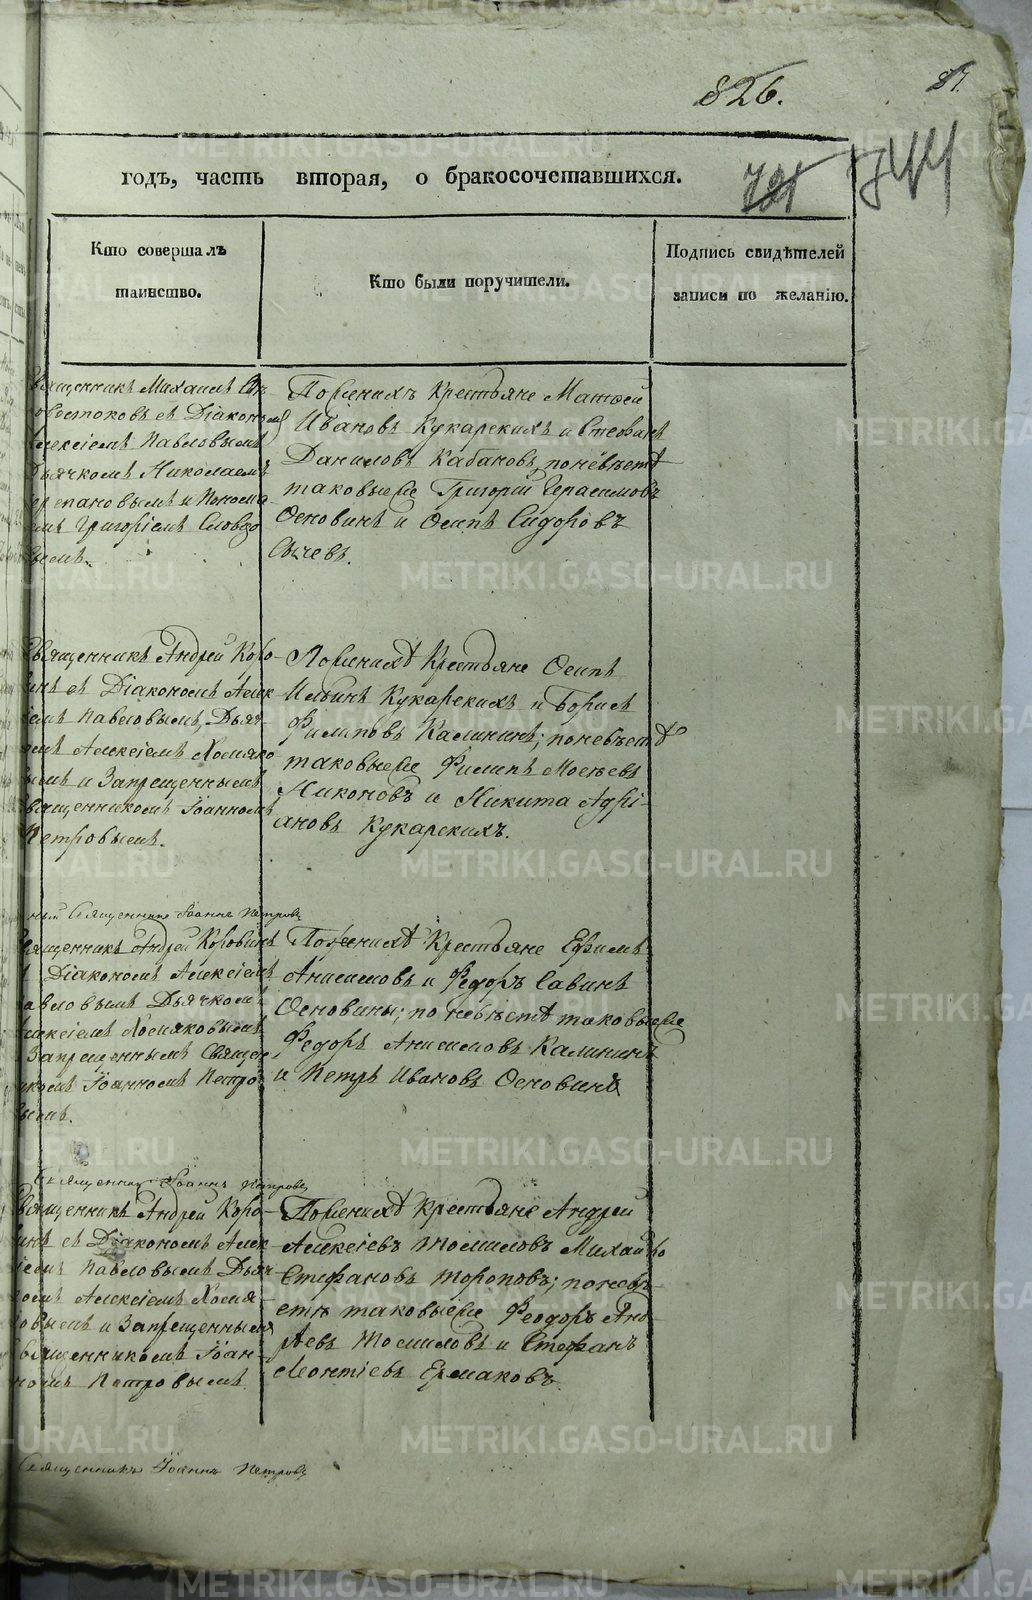 826.
годъ, часть вторая, о бракосочетавшихся.
Кто совершалъ
таинство.
Кто были поручители.
Подпись свидѣтелей
записи по желанію.
Михаилъ
Діаконъ
Павловымъ
Николаемъ
и
Григоріемъ
По женихѣ Крестьяне Матѳей
Ивановъ Кукарскихъ и Стефанъ
Даниловъ Кабановъ, по невѣстѣ
таковыеже Григорій Герасимовъ
Основинъ и Осипъ Сидоровъ
Сычевъ.
Священникъ Андрей Коро-
съ Діакономъ Алек
Павловымъ, Дьяч-
Алексіемъ Хомяко
и Запрещеннымъ
Священникомъ Іоанномъ
Петровымъ.
По женихѣ Крестьяне Осипъ
Ильинъ Кукарскихъ и Борисъ
Филиповъ Калининъ; по невѣстѣ
таковыеже Филипъ Моисѣевъ
Никоновъ и Никита Адрі-
ановъ Кукарскихъ.
Священникъ Іоаннъ Петровъ
Андрей Коровинъ
Діакономъ Алексіемъ
Дьячкомъ
Хомяковымъ
Запрещеннымъ Священ
Іоанномъ Петро
По женихѣ Крестьяне Ефимъ
Анисимовъ и Федоръ Савинъ
Основины; по невѣстѣ таковыеже
Федоръ Анисимовъ Калининъ
и Петръ Ивановъ Основинъ
Священникъ Іоаннъ Петровъ
Священникъ Андрей Коро-
съ Діакономъ Алек
Павловымъ Дьяч
Алексіемъ Хомя-
и Запрещеннымъ
Священникомъ Іоан-
Петровымъ
По женихѣ Крестьяне Андрей
Алексіевъ Томиловъ Михайло
Стефановъ Тороповъ; по невѣ-
стѣ таковыеже Феодоръ Анд-
реевъ Томиловъ и Стефанъ
Леонтіевъ Ермаковъ
Священникъ Іоаннъ Петровъ
METRIKI.GASO-URAL.RU